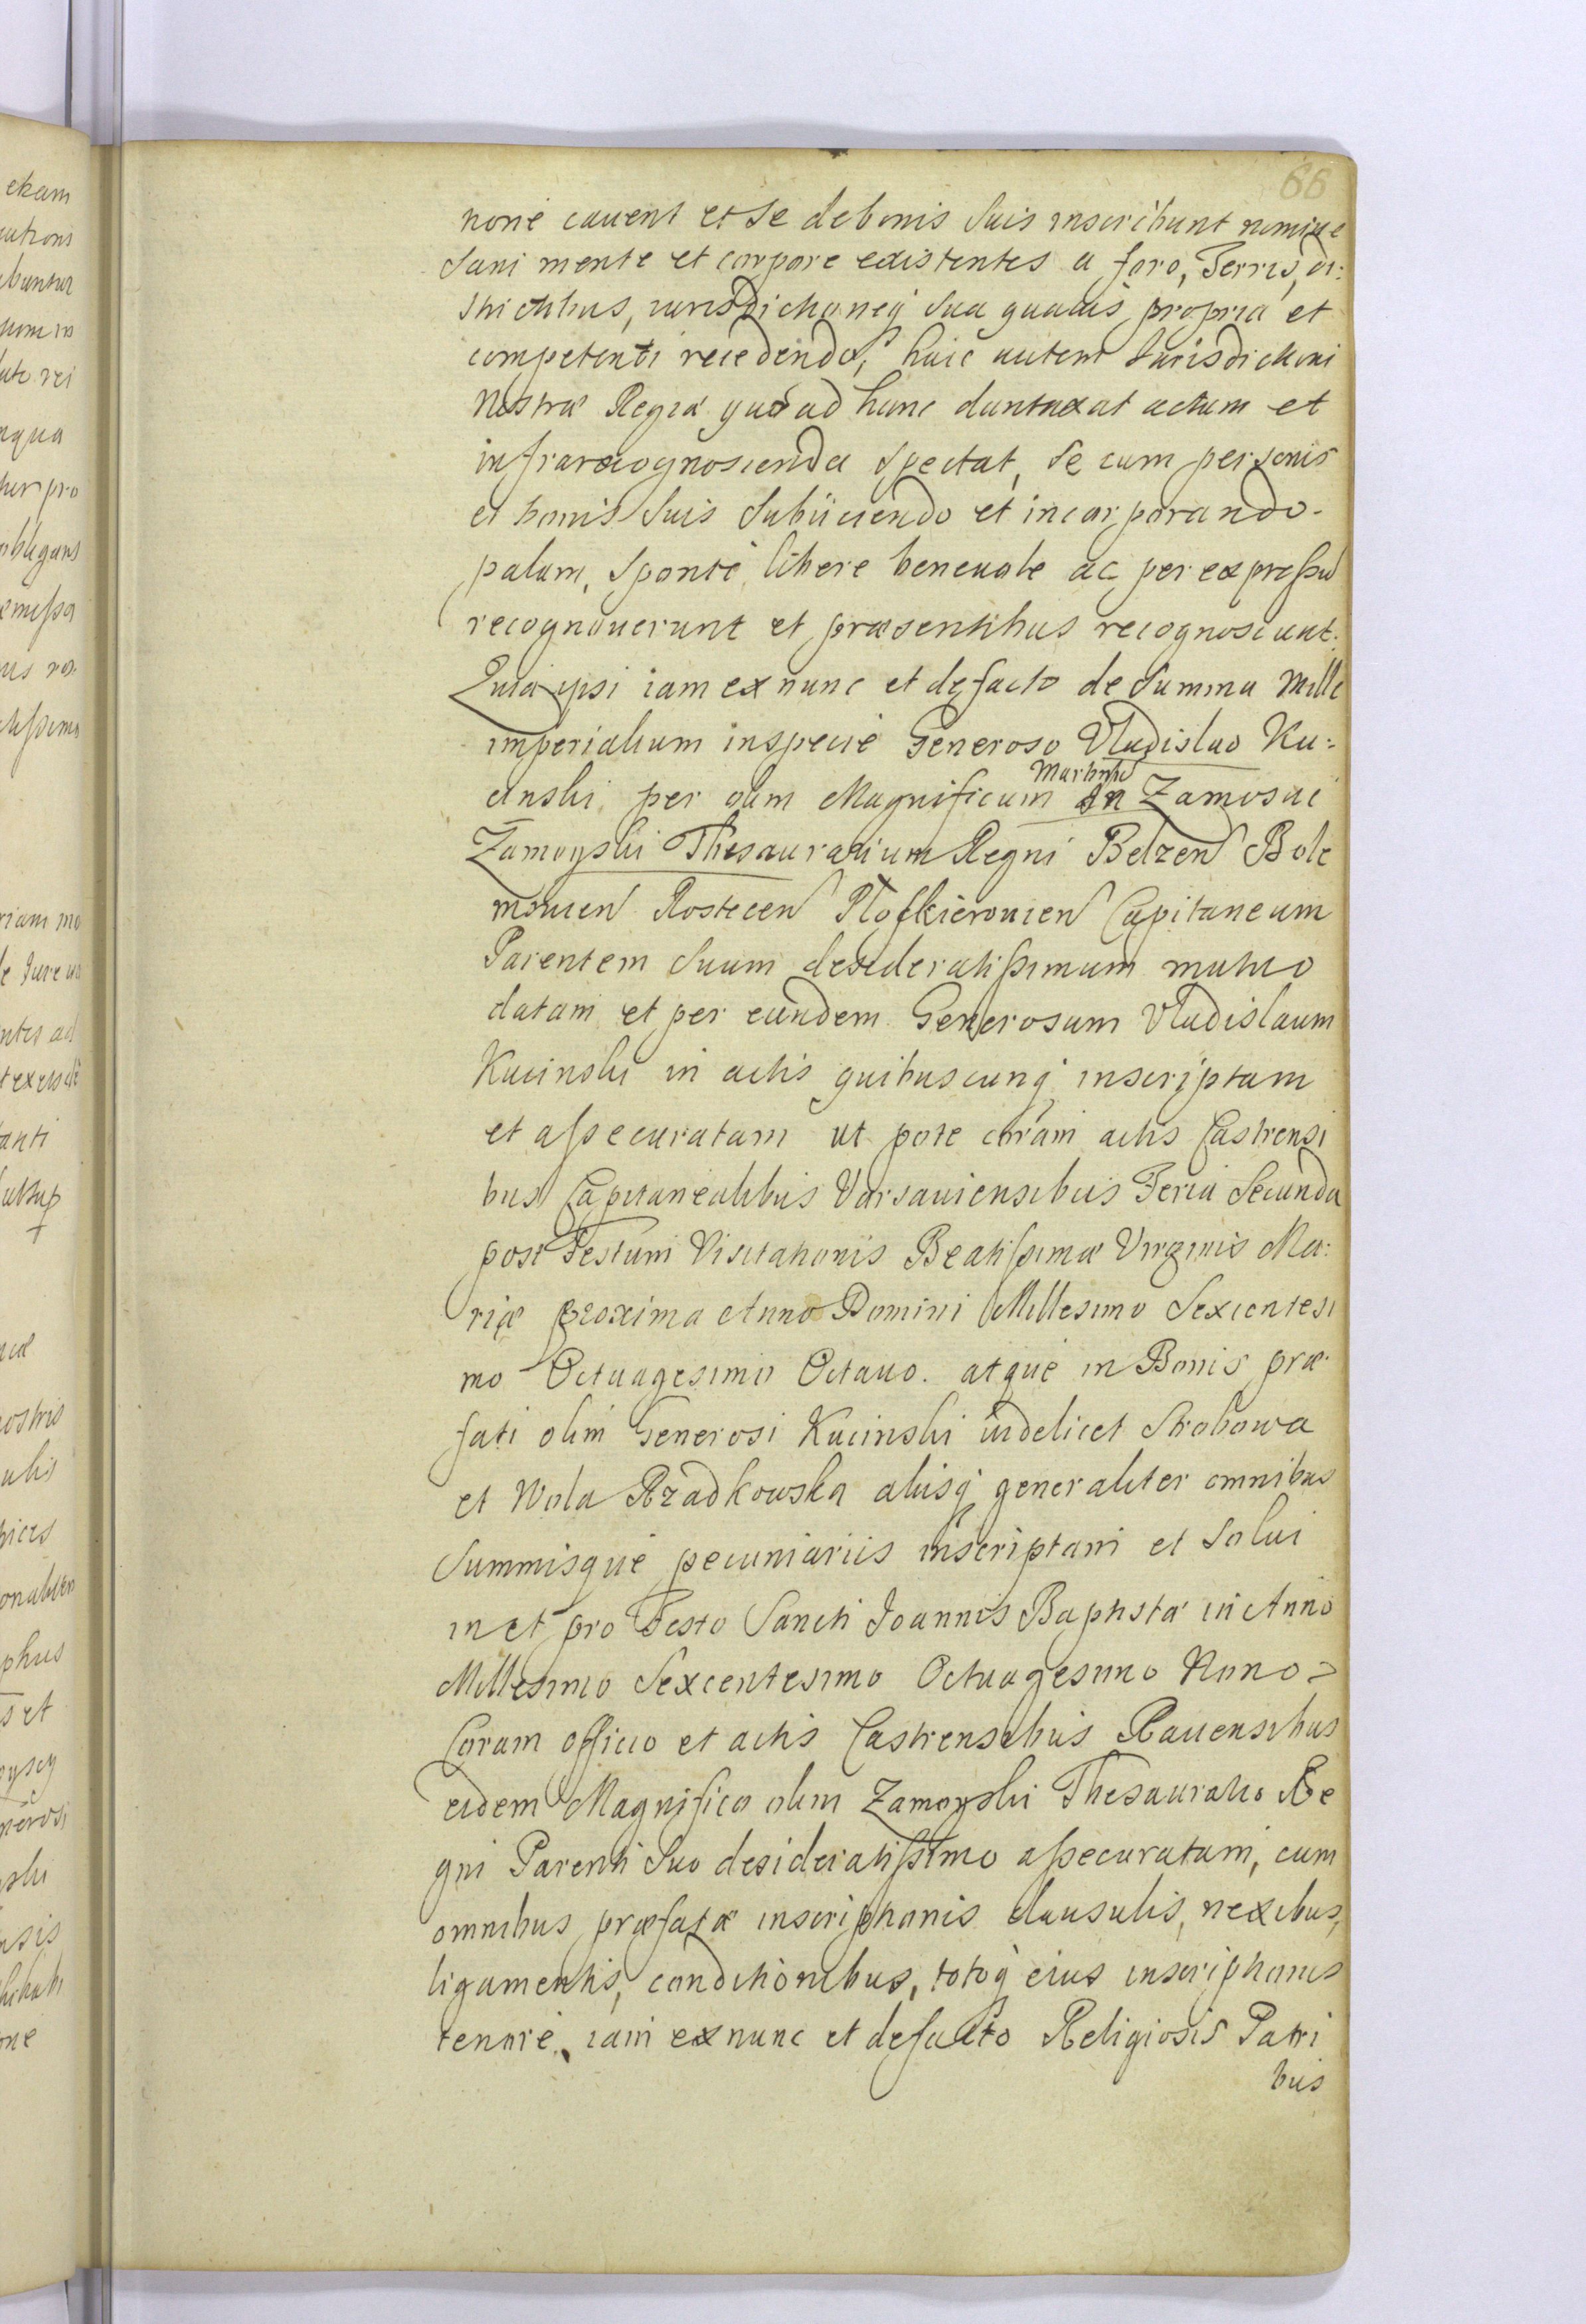 66
none cauent et se debonis suis inscribunt nomine
sani mente et corpore existentes a foro, Terris, di:
strictibus, iurisdictioneq́ sua quauis propria et
competenti recedendo, huic autem Jurisdictioni
Nostræ Regiæ quo ad hunc duntaxat actum et
infrarecognoscenda spectat, se cum personis
et bonis suis subiiciendo et incorporando.
palam, sponte, libere beneuole ac per expressu
recognouerunt et præsentibus recognoscunt.
Quia ipsi iam ex nunc et defacto de Summa Mille
imperialium inspecie Generoso Vladislao Ku:
cinski per olim Magnificum Martinũ in Zamoscie
Zamoyski Thesaurarium Regni Belzen Bole
mouien Rostecen Ploskierouien Capitaneum
Parentem suum desideratissimum mutuo
datam et per eundem Generosum Vladislaum
Kucinski in actis quibuscunq́ inscriptam
et assecuratam ut pote coram actis Castrensi
bus Capitanealibus Varsauiensibus Feria Secunda
post Festum Visitationis Beatissimæ Virginis Ma:
riæ proxima Anno Domini Millesimo Sexcentesi
mo Octuagesimo Octauo. atque in Bonis præ
fati olim Generosi Kucinski uidelicet Strobowa
et Wola Rzadkowska aliisq́ generaliter omnibus
Summisque pecuniariis inscriptam et Solui
in et pro Festo Sancti Joannis Baptistæ in Anno
Millesimo Sexcentesimo Octuagesimo Nono
Coram officio et actis Castrensibus Rauensibus
eidem Magnifico olim Zamoyski Thesaurario Re
gni Parenti suo desideratissimo assecuratam, cum
omnibus præfatæ inscriptionis clausulis, nexibus,
ligamentis, conditionibus, totoq́ eius inscriptionis
tenore. iam ex nunc et defacto Religiosis Patri
bus